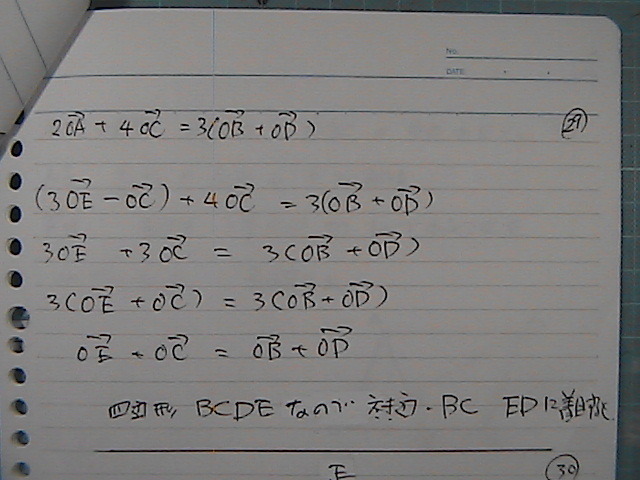 No.
DATE
2OA→ + 4OC→ = 3(OB→ + OD→) ㉙
(3OE→ - OC→) + 4OC→ = 3(OB→ + OD→)
3OE→ + 3OC→ = 3(OB→ + OD→)
3(OE→ + OC→) = 3(OB→ + OD→)
OE→ + OC→ = OB→ + OD→
四辺形 BCDE なので 対辺・BC ED に着目
E ㉚